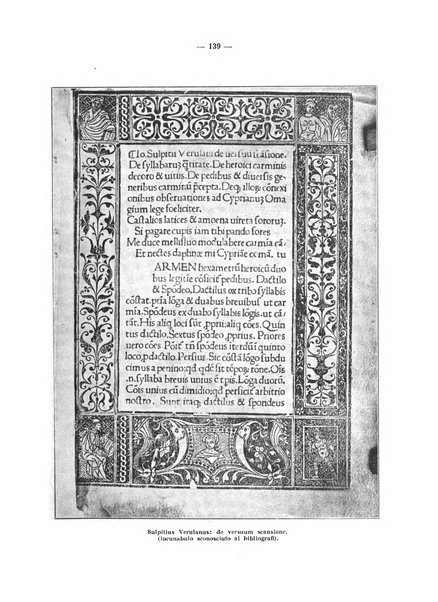 — 139 —
¶Io. Sulpitii Verulani de uersuū scāsione.
De syllabaruȝ q̃titate. De heroici carminis
decoro & uitiis. De pedibus & diuersis ge
neribus carminū p̃cepta. Deqȝ illoȝ cōnexi
onibus obseruationes ad Cyprianuȝ Oma
gium lege foeliciter.
Castalios latices & amoena uireta sororuȝ
Si pagare cupis iam tibi pando fores
Me duce mellifluo modulabere carmīa cā
Et nectes daphnæ mi Cypriāe co⁊. tu
ARMEN hexametrū heroicū duo
bus legitīe cōsicit̃ pedibus. Dactilo
& Spōdeo. Dactilus ex tribo syllabis
cōstat. pria lōga & duabus breuibus ut car
mīa. Spōdeus ex duabo syllabis lōgis. ut cā
tant. His aliq̃ loci sūt ,pprii: aliq̃ cōes. Quin
tus dactilo. Sextus spōdeo ,pprius. Priores
uero cōes Pōt̃ tñ spōdeus īterdū quinto
loco, p dactilo. Persius. Sic cōstā lōgo subdu
cimus apenino: qd̃ qdẽ sit tẽpoȝ rōne. Ois
.n. syllaba breuis unius ẽ t̃pis. Lōga duorū.
Cōis unius cū dimidio: qd̃ persicit̃ arbitrio
nostro. Sunt itaqȝ dactilus & spondeus
Sulpitius Verulanus: de versuum scansione.
(incunabulo sconosciuto ai bibliografi).